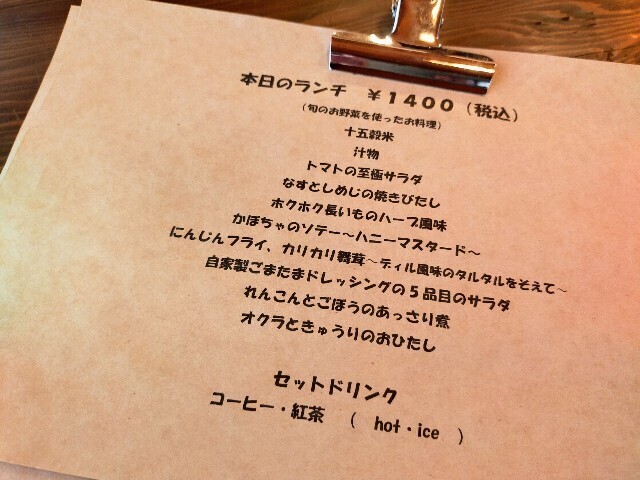 本日のランチ ￥１４００（税込）
（旬のお野菜を使ったお料理）
十五穀米
汁物
トマトの至極サラダ
なすとしめじの焼きびたし
ホクホク長いものハーブ風味
かぼちゃのソテー～ハニーマスタード～
にんじんフライ、カリカリ舞茸～ディル風味のタルタルをそえて～
自家製ごまたまドレッシングの５品目のサラダ
れんこんとごぼうのあっさり煮
オクラときゅうりのおひたし
セットドリンク
コーヒー・紅茶 （ hot・ice ）